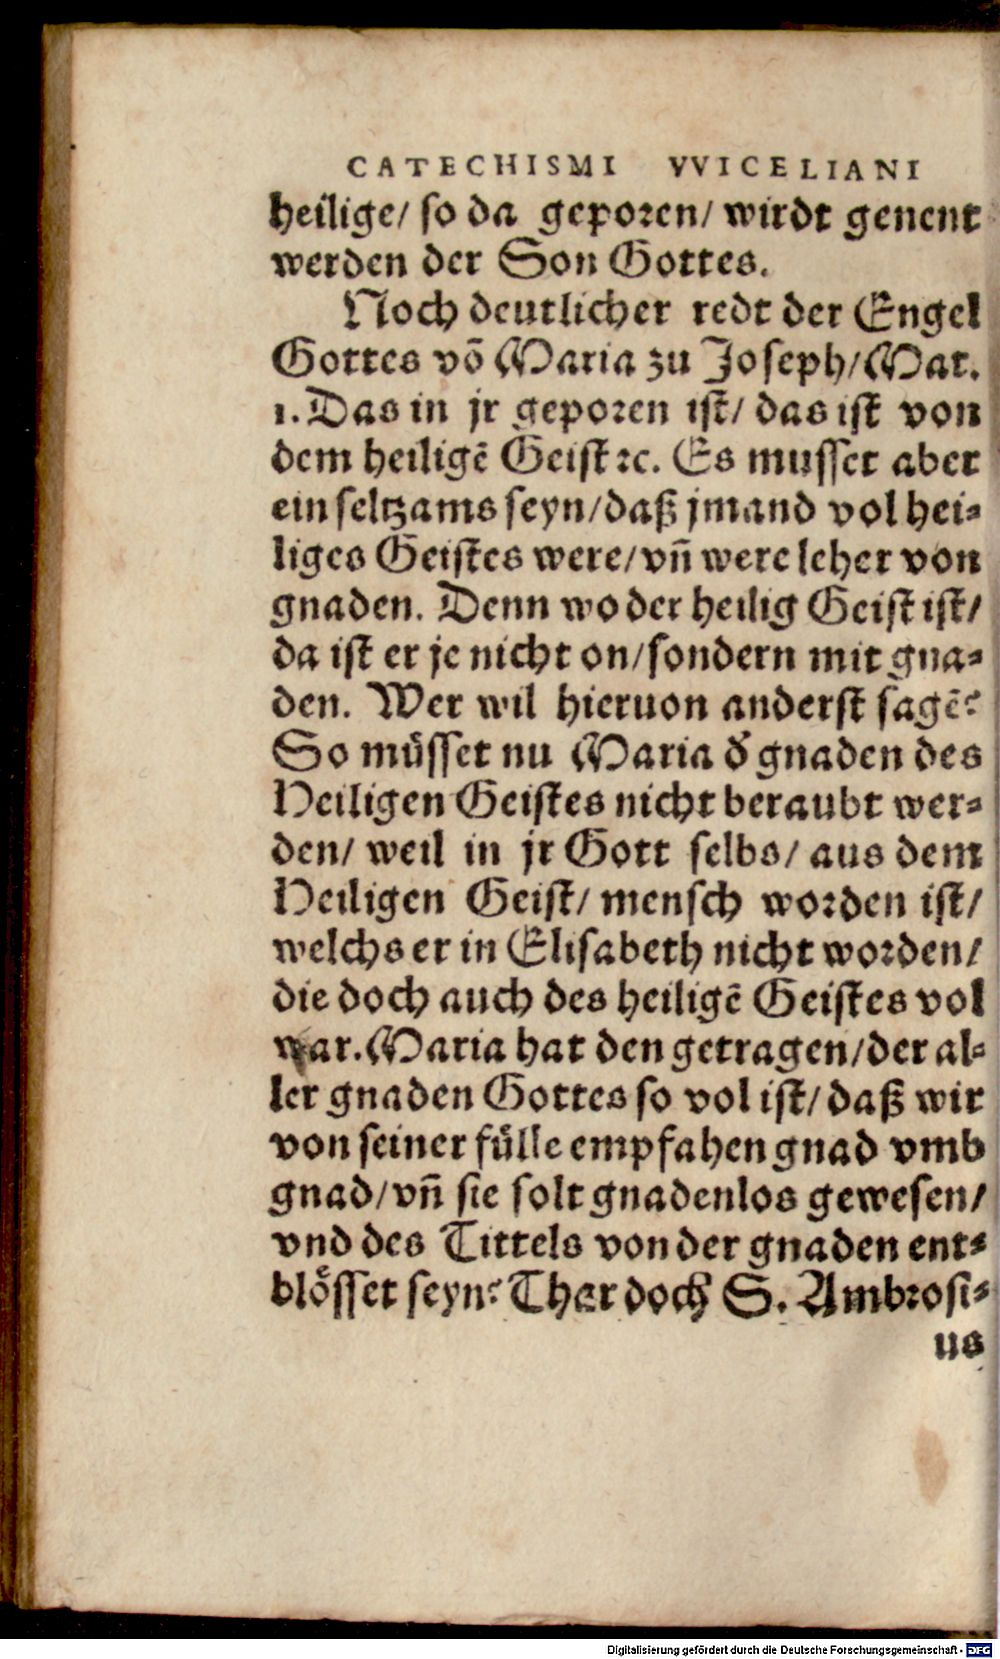 CATECHISMI VVICELIANI
heilige/ so da geporen/ wirdt genent
werden der Son Gottes.
Noch deutlicher redt der Engel
Gottes võ Maria zu Joseph/Mat.
1. Das in jr geporen ist/ das ist von
dem heiligẽ Geist ꝛc. Es musset aber
ein seltzams seyn/daß jmand vol hei⸗
liges Geistes were/vñ were leher von
gnaden. Denn wo der heilig Geist ist/
da ist er je nicht on/sondern mit gna⸗
den. Wer wil hieruon anderst sagẽ?
So müsset nu Maria d̃ gnaden des
Heiligen Geistes nicht beraubt wer⸗
den/ weil in jr Gott selbs/ aus dem
Heiligen Geist/ mensch worden ist/
welchs er in Elisabeth nicht worden/
die doch auch des heiligẽ Geistes vol
war. Maria hat den getragen/der al⸗
ler gnaden Gottes so vol ist/daß wir
von seiner fülle empfahen gnad vmb
gnad/vñ sie solt gnadenlos gewesen/
vnd des Tittels von der gnaden ent⸗
blösset seyn? Thar doch S. Ambrosi⸗
us
Digitalisierung gefördert durch die Deutsche Forschungsgemeinschaft - DFG